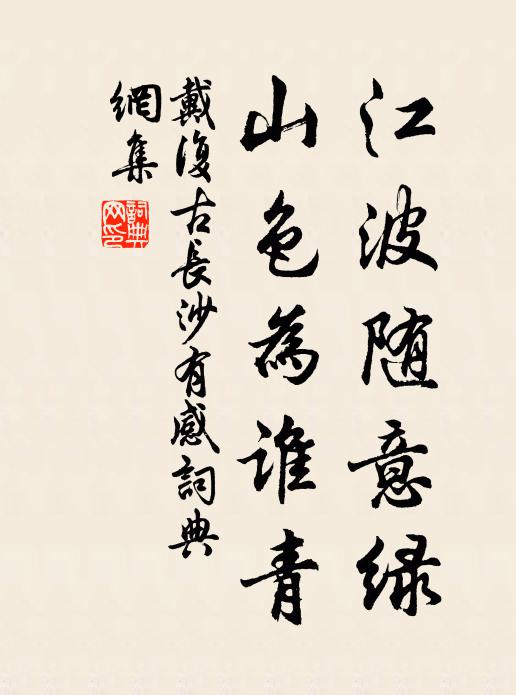 江波随意緑
山色為誰青
戴復古長沙有感詞典
網集
詞典
网印